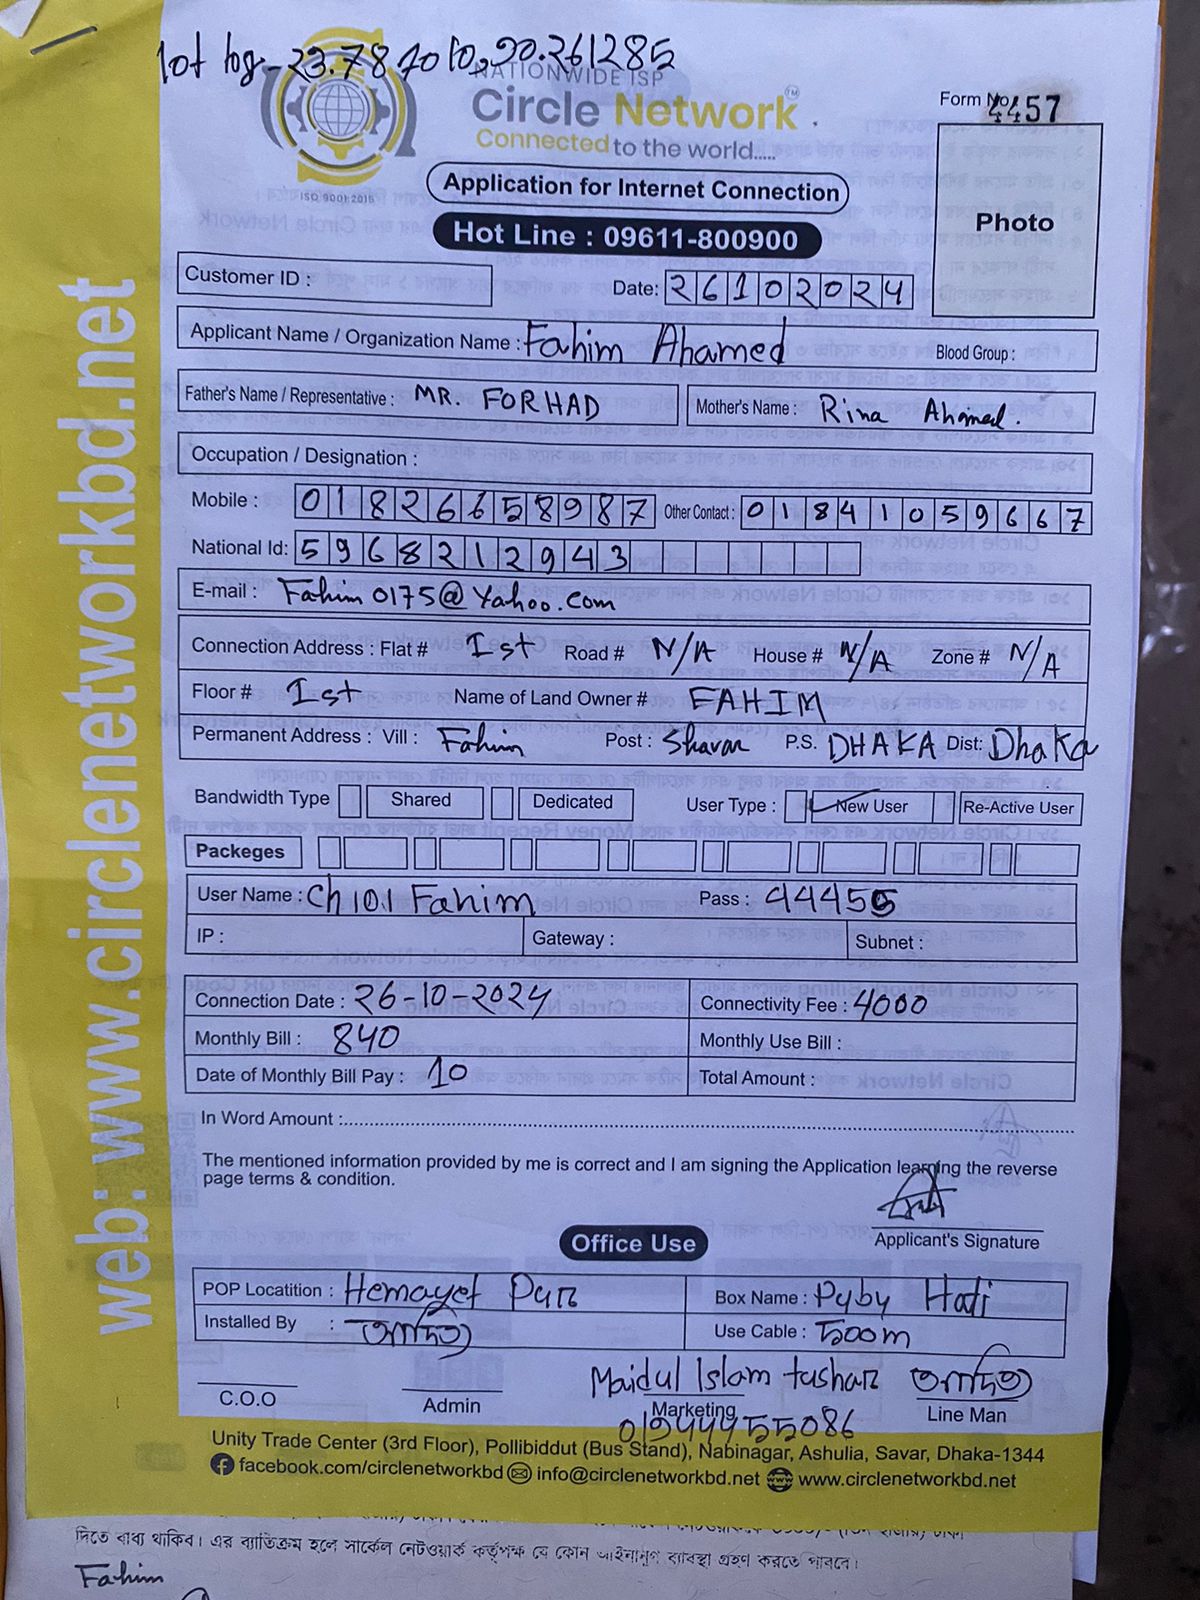 lot log-23.787010,90.261285
NATIONWIDE ISP
Circle Network TM
Connected to the world.....
ISO 9001:2015
Form No: 4457
Application for Internet Connection
Photo
Hot Line : 09611-800900
Customer ID :
Date: 26102024
Applicant Name / Organization Name : Fahim Ahamed Blood Group :
Father's Name / Representative : MR. FORHAD Mother's Name : Rina Ahamed.
Occupation / Designation :
Mobile : 01826658987 Other Contact : 01841059667
National Id: 5968212943
E-mail : Fahim0175@Yahoo.com
Connection Address : Flat # Ist Road # N/A House # N/A Zone # N/A
Floor # Ist Name of Land Owner # FAHIM
Permanent Address : Vill : Fahim Post : Shavar P.S. DHAKA Dist: Dhaka
Bandwidth Type Shared Dedicated User Type : New User Re-Active User
Packeges
User Name : Ch101Fahim Pass : 44455
IP : Gateway : Subnet :
Connection Date : 26-10-2024 Connectivity Fee : 4000
Monthly Bill : 840 Monthly Use Bill :
Date of Monthly Bill Pay : 10 Total Amount :
In Word Amount :
The mentioned information provided by me is correct and I am signing the Application learning the reverse
page terms & condition.
Applicant's Signature
Office Use
POP Locatition : Hemayet Pur Box Name : Pyby Hati
Installed By : Use Cable : 500m
Maidul Islam tushar
C.O.O Admin Marketing Line Man
01944455086
Unity Trade Center (3rd Floor), Pollibiddut (Bus Stand), Nabinagar, Ashulia, Savar, Dhaka-1344
facebook.com/circlenetworkbd info@circlenetworkbd.net www.circlenetworkbd.net
web: www.circlenetworkbd.net
দিতে বাধ্য থাকিব। এর ব্যতিক্রম হলে সার্কেল নেটওয়ার্ক কর্তৃপক্ষ যে কোন আইনানুগ ব্যবস্থা গ্রহণ করতে পারবে।
Fahim